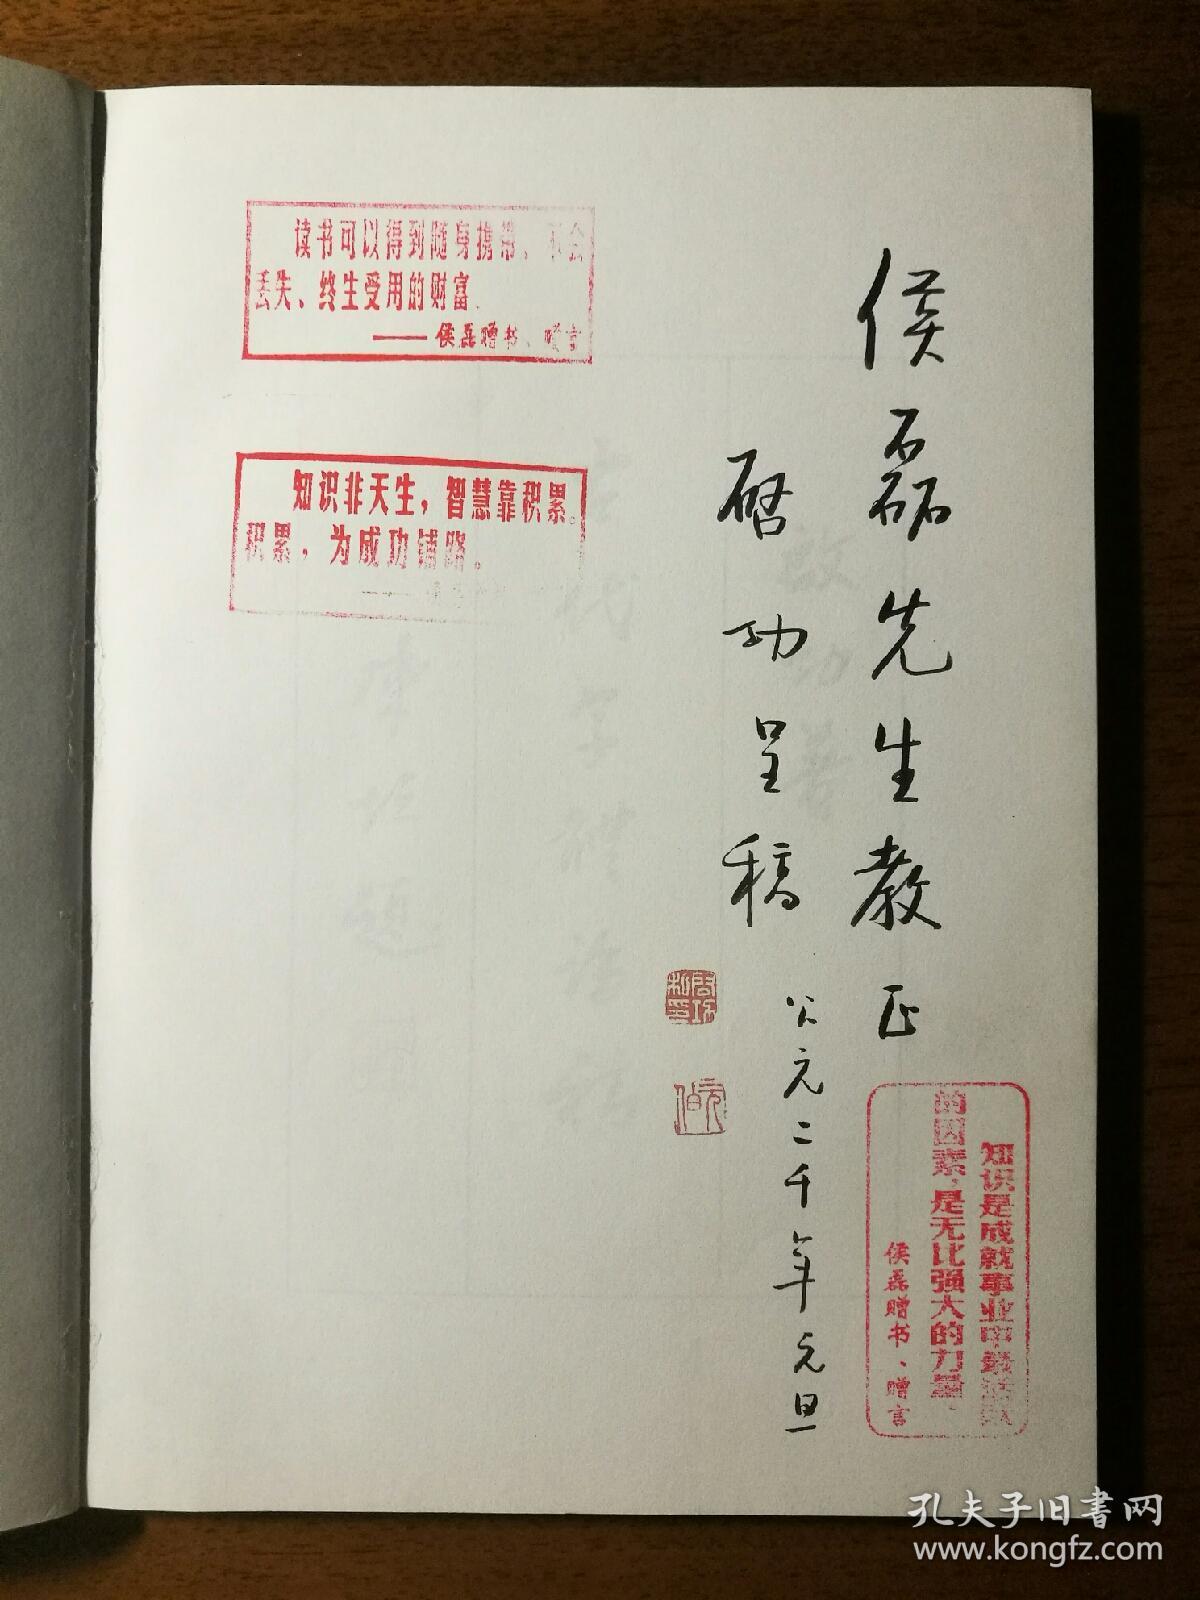 侯磊先生教正
启功呈稿
公元二千年元旦
启功
元伯
读书可以得到随身携带、不会
丢失、终生受用的财富
——侯磊赠书、赠言
知识非天生，智慧靠积累。
积累，为成功铺路。
知识是成就事业中最活跃
的因素，是无比强大的力量。
侯磊赠书、赠言
孔夫子旧书网
www.kongfz.com